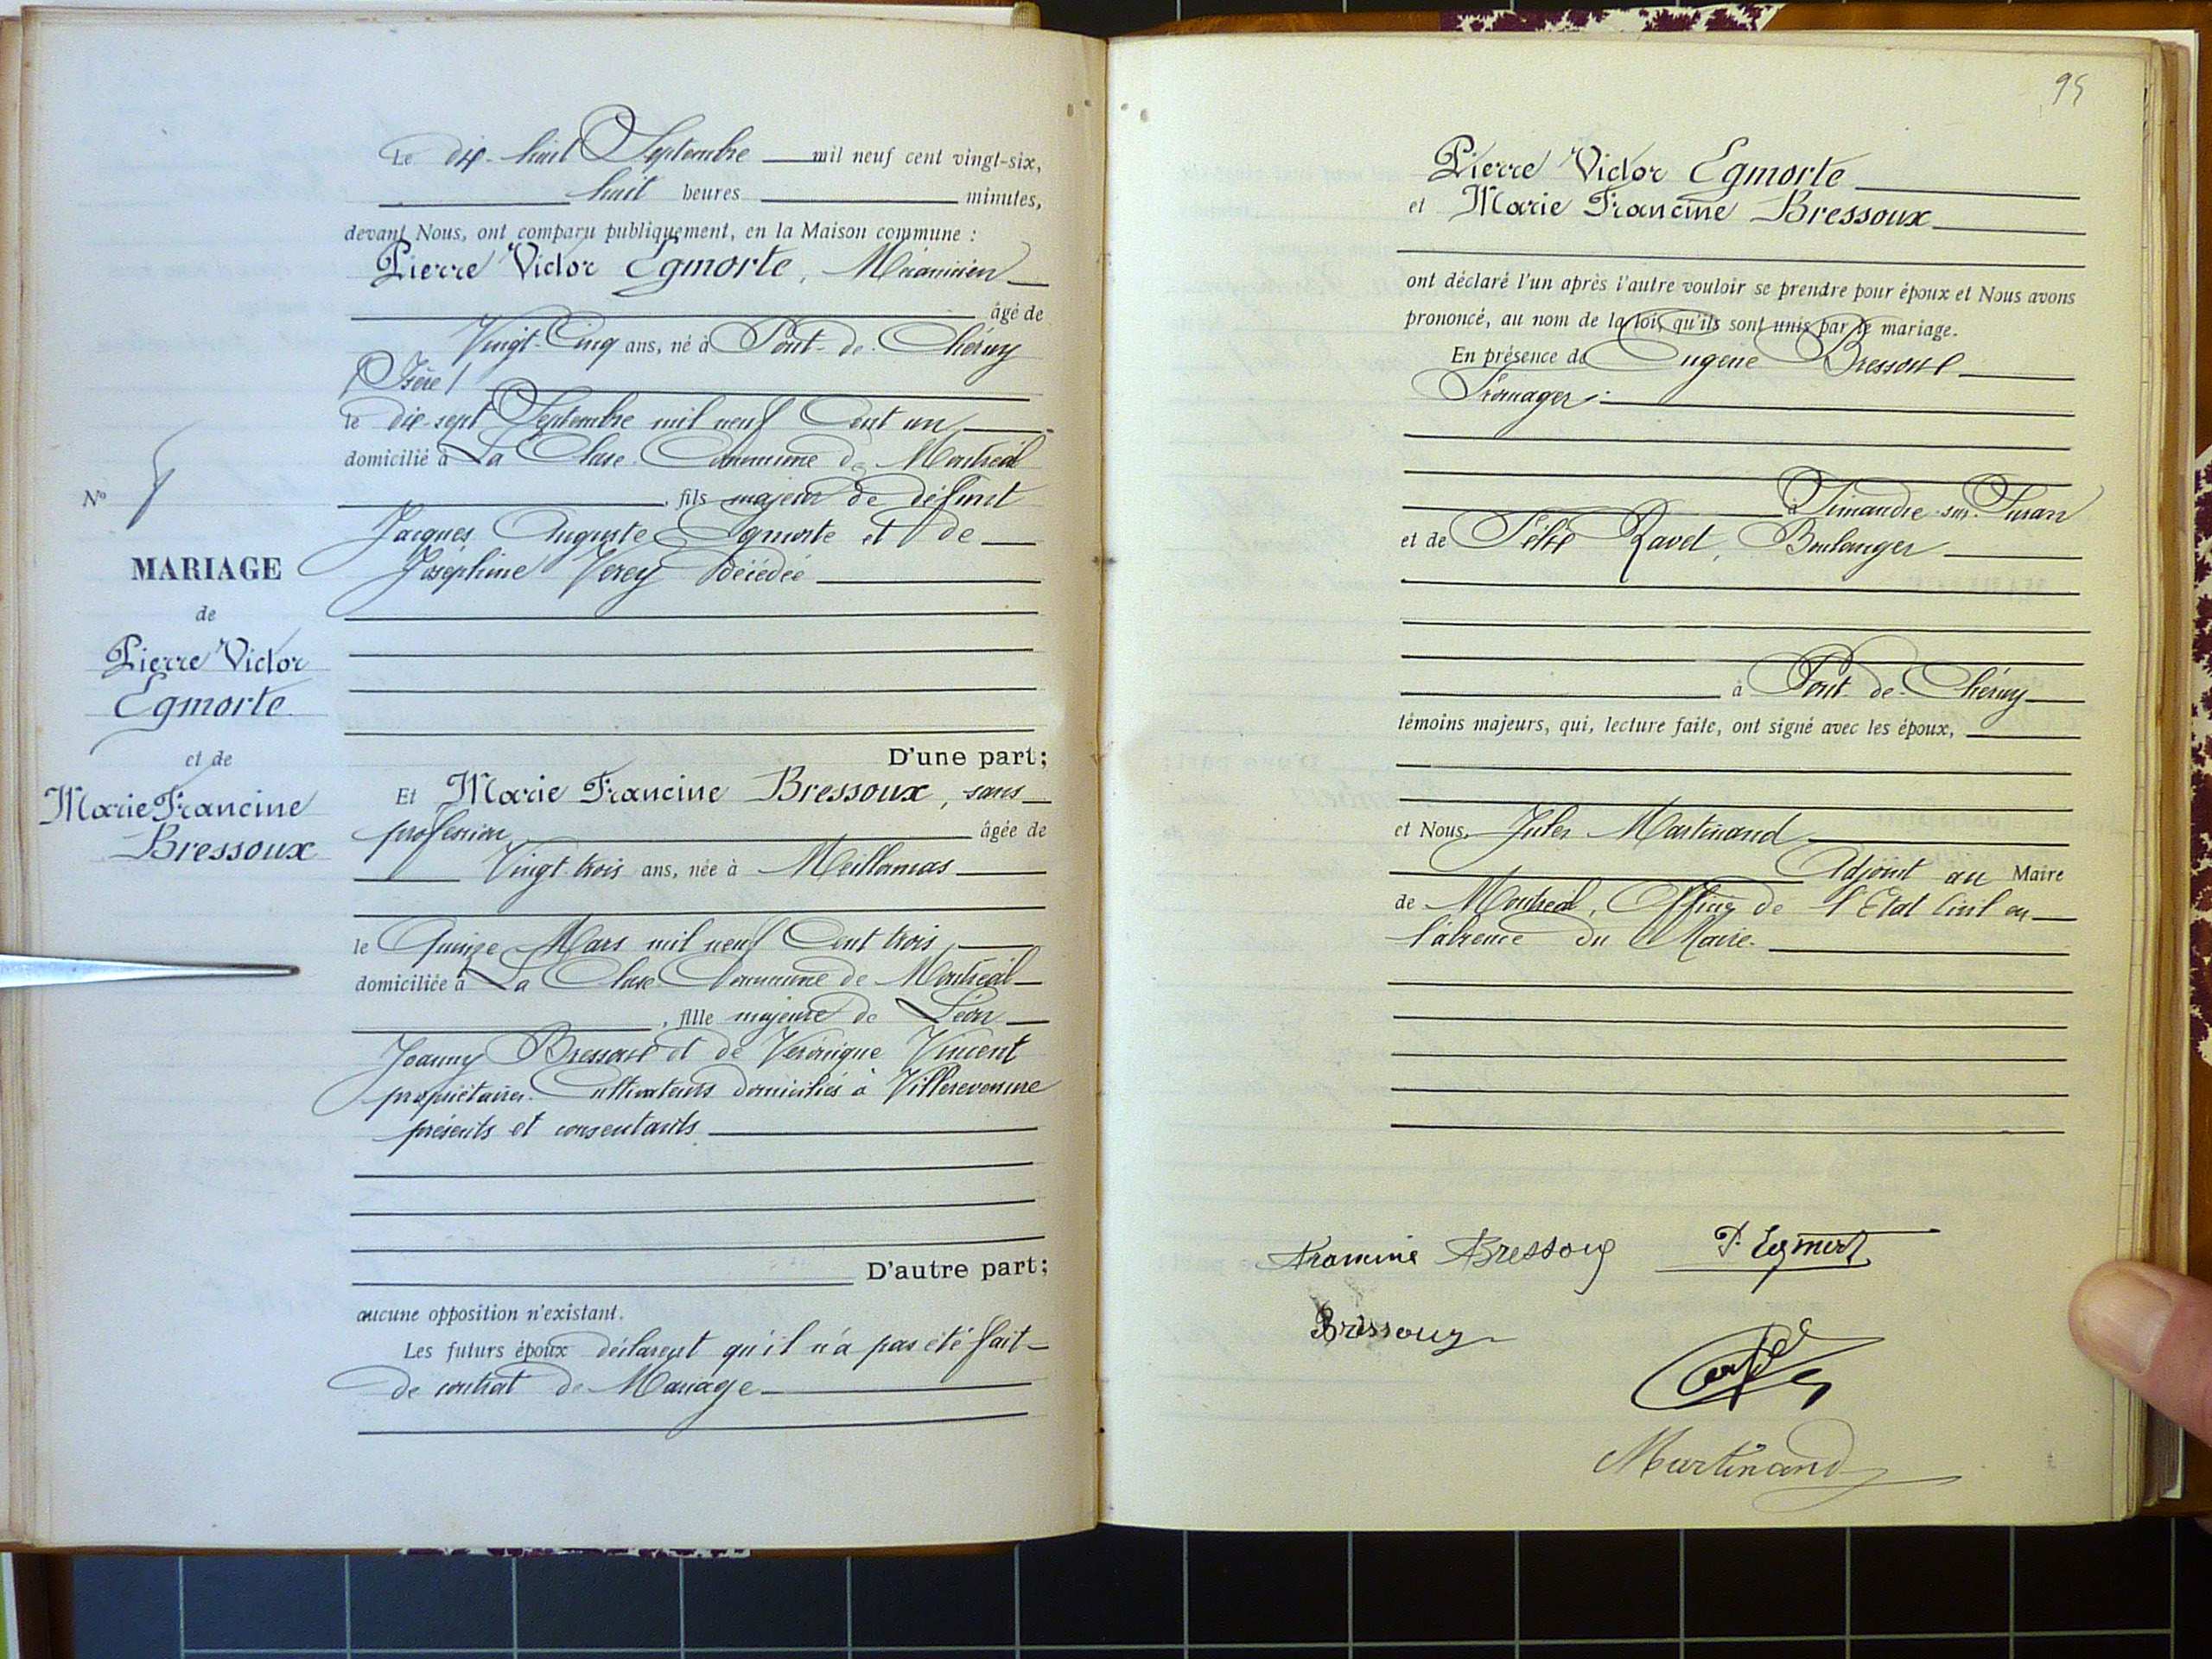 Le dix-huit Septembre mil neuf cent vingt-six,
huit heures minutes,
devant Nous, ont comparu publiquement, en la Maison commune :
Pierre Victor Egmorte, Mécanicien
âgé de
Vingt-Cinq ans, né à Pont-de-Chéruy
(Isère)
le dix-sept Septembre mil neuf Cent un
domicilié à La Cluse Commune de Montréal
, fils majeur de défunt
Jacques Auguste Egmorte et de
Joséphine Verey décédée
N°
MARIAGE
de
Pierre Victor
Egmorte
et de
Marie Francine
Bressoux
D'une part;
Et Marie Francine Bressoux, sans
profession âgée de
Vingt-trois ans, née à Meillonnas
le Quinze Mars mil neuf Cent trois
domiciliée à La Cluse Commune de Montréal
, fille majeure de Léon
Joanny Bressoux et de Véronique Vincent
propriétaires Cultivateurs domiciliés à Villereversure
présents et consentants
D'autre part;
aucune opposition n'existant.
Les futurs époux déclarent qu'il n'a pas été fait
de contrat de Mariage
95
Pierre Victor Egmorte
et Marie Francine Bressoux
ont déclaré l'un après l'autre vouloir se prendre pour époux et Nous avons
prononcé, au nom de la loi, qu'ils sont unis par le mariage.
En présence de Eugène Bressoux
Fromager
à Simandre-sur-Suran
et de Félix Ravet, Boulanger
à Pont-de-Chéruy
témoins majeurs, qui, lecture faite, ont signé avec les époux,
et Nous, Jules Martinand
Adjoint au Maire
de Montréal, Officier de l'Etat Civil en
l'absence du Maire.
Francine Bressoux P. Egmort
Bressoux
Martinand